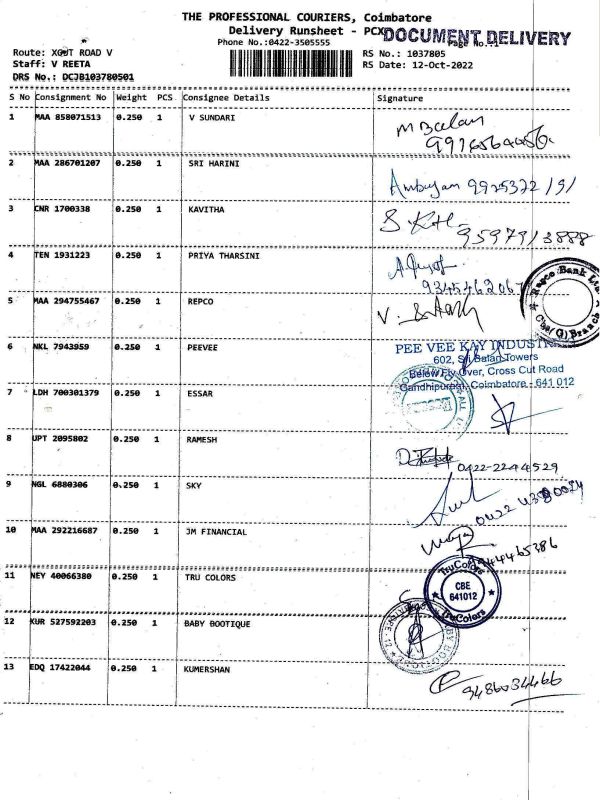 THE PROFESSIONAL COURIERS, Coimbatore
Delivery Runsheet - PCX
DOCUMENT DELIVERY
Phone No.:0422-3505555
Page No.:1
Route: XCUT ROAD V
RS No.: 1037805
Staff: V REETA
RS Date: 12-Oct-2022
DRS No.: DCJB103780501
S No Consignment No Weight PCS Consignee Details Signature
1 MAA 858071513 0.250 1 V SUNDARI
2 MAA 286701207 0.250 1 SRI HARINI
3 CNR 1700338 0.250 1 KAVITHA
9597913888
4 TEN 1931223 0.250 1 PRIYA THARSINI
5 MAA 294755467 0.250 1 REPCO
Repco Bank Ltd
Branch
6 NKL 7943959 0.250 1 PEEVEE
PEE VEE KAY INDUSTR
602, Sri Balan Towers
Below Fly Over, Cross Cut Road
Gandhipuram, Coimbatore - 641 012
7 LDH 700301379 0.250 1 ESSAR
8 UPT 2095802 0.250 1 RAMESH
0422-2244529
9 NGL 6880306 0.250 1 SKY
10 MAA 292216687 0.250 1 JM FINANCIAL
11 NEY 40066380 0.250 1 TRU COLORS
TruColors
CBE
641012
TruColors
12 KUR 527592203 0.250 1 BABY BOOTIQUE
13 EDQ 17422044 0.250 1 KUMERSHAN
9486034466